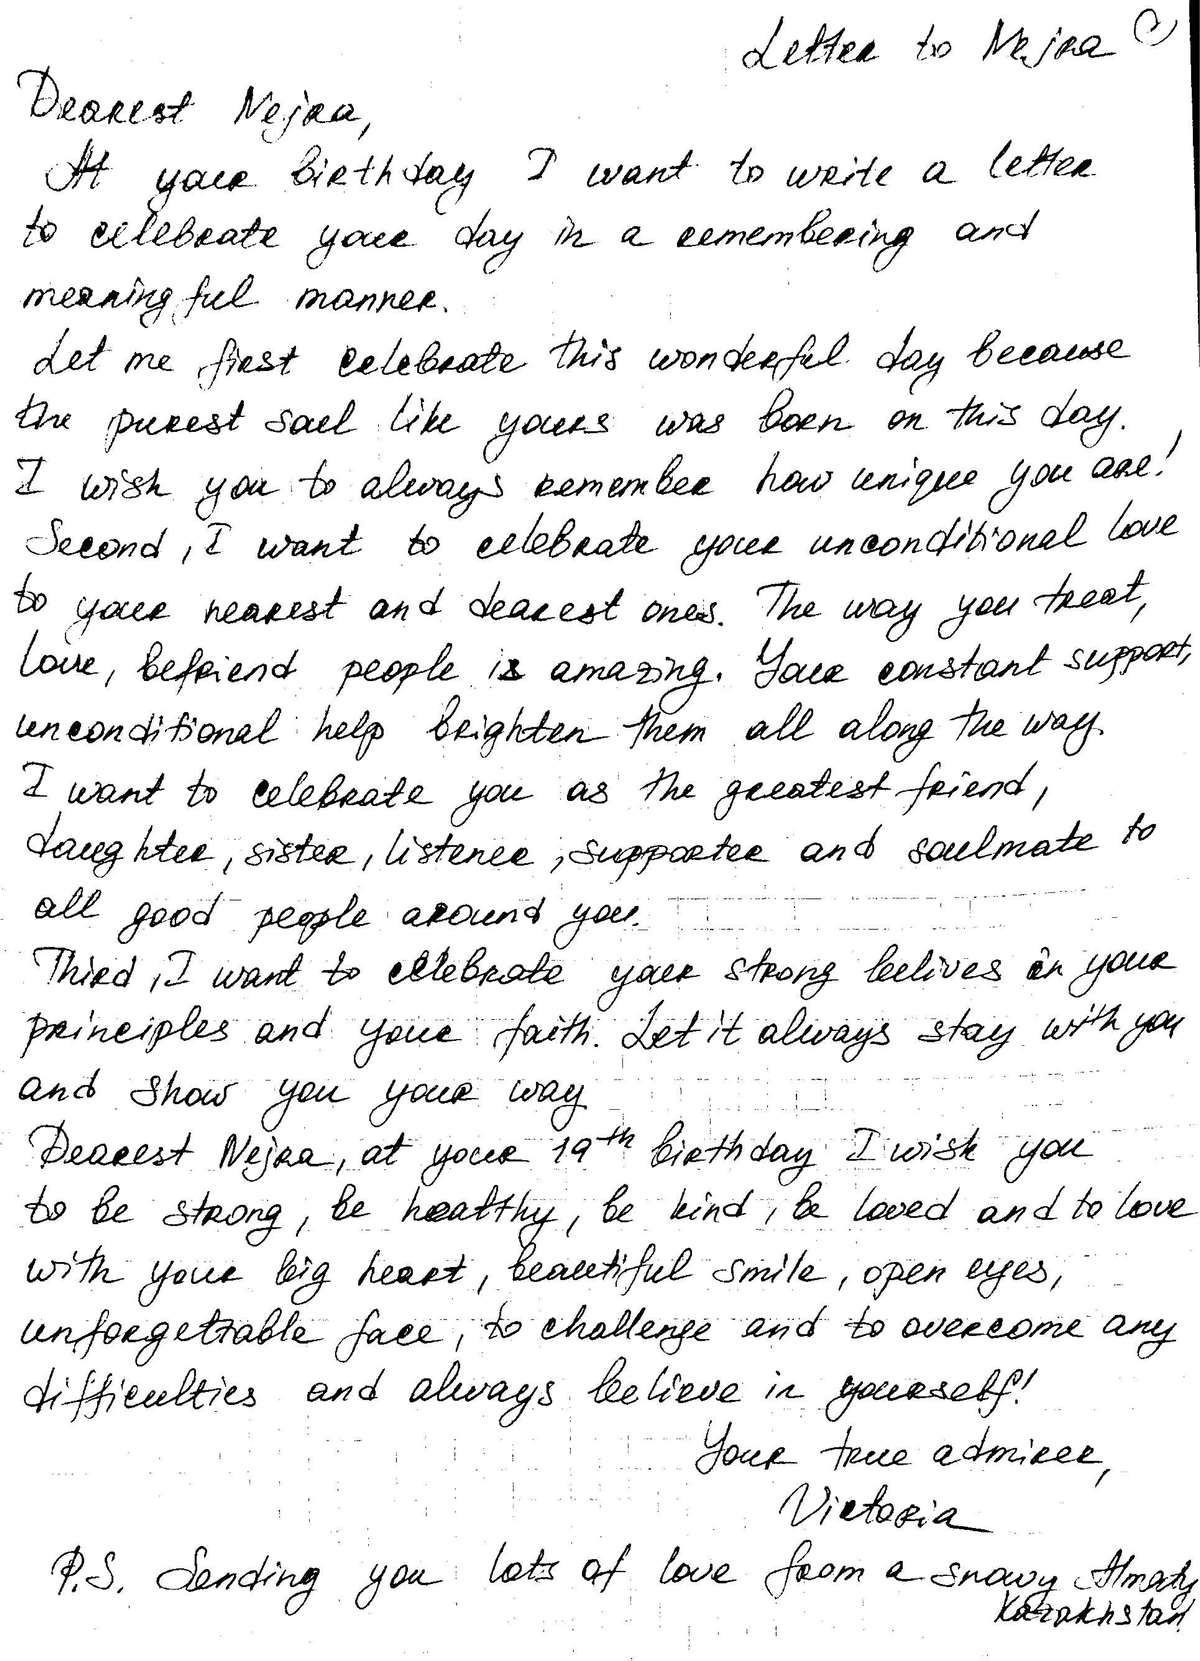 Letter to Nejra
Dearest Nejra,
At your birthday I want to write a letter
to celebrate your day in a remembering and
meaningful manner.
Let me first celebrate this wonderful day because
the purest soul like yours was born on this day.
I wish you to always remember how unique you are!
Second, I want to celebrate your unconditional love
to your nearest and dearest ones. The way you treat,
love, befriend people is amazing. Your constant support,
unconditional help brighten them all along the way.
I want to celebrate you as the greatest friend,
daughter, sister, listener, supporter and soulmate to
all good people around you.
Third, I want to celebrate your strong belives in your
principles and your faith. Let it always stay with you
and show you your way
Dearest Nejra, at your 19th birthday I wish you
to be strong, be healthy, be kind, be loved and to love
with your big heart, beautiful smile, open eyes,
unforgettable face, to challenge and to overcome any
difficulties and always believe in yourself!
Your true admirer,
Victoria
P.S. Sending you lots of love from a snowy Almaty
Kazakhstan